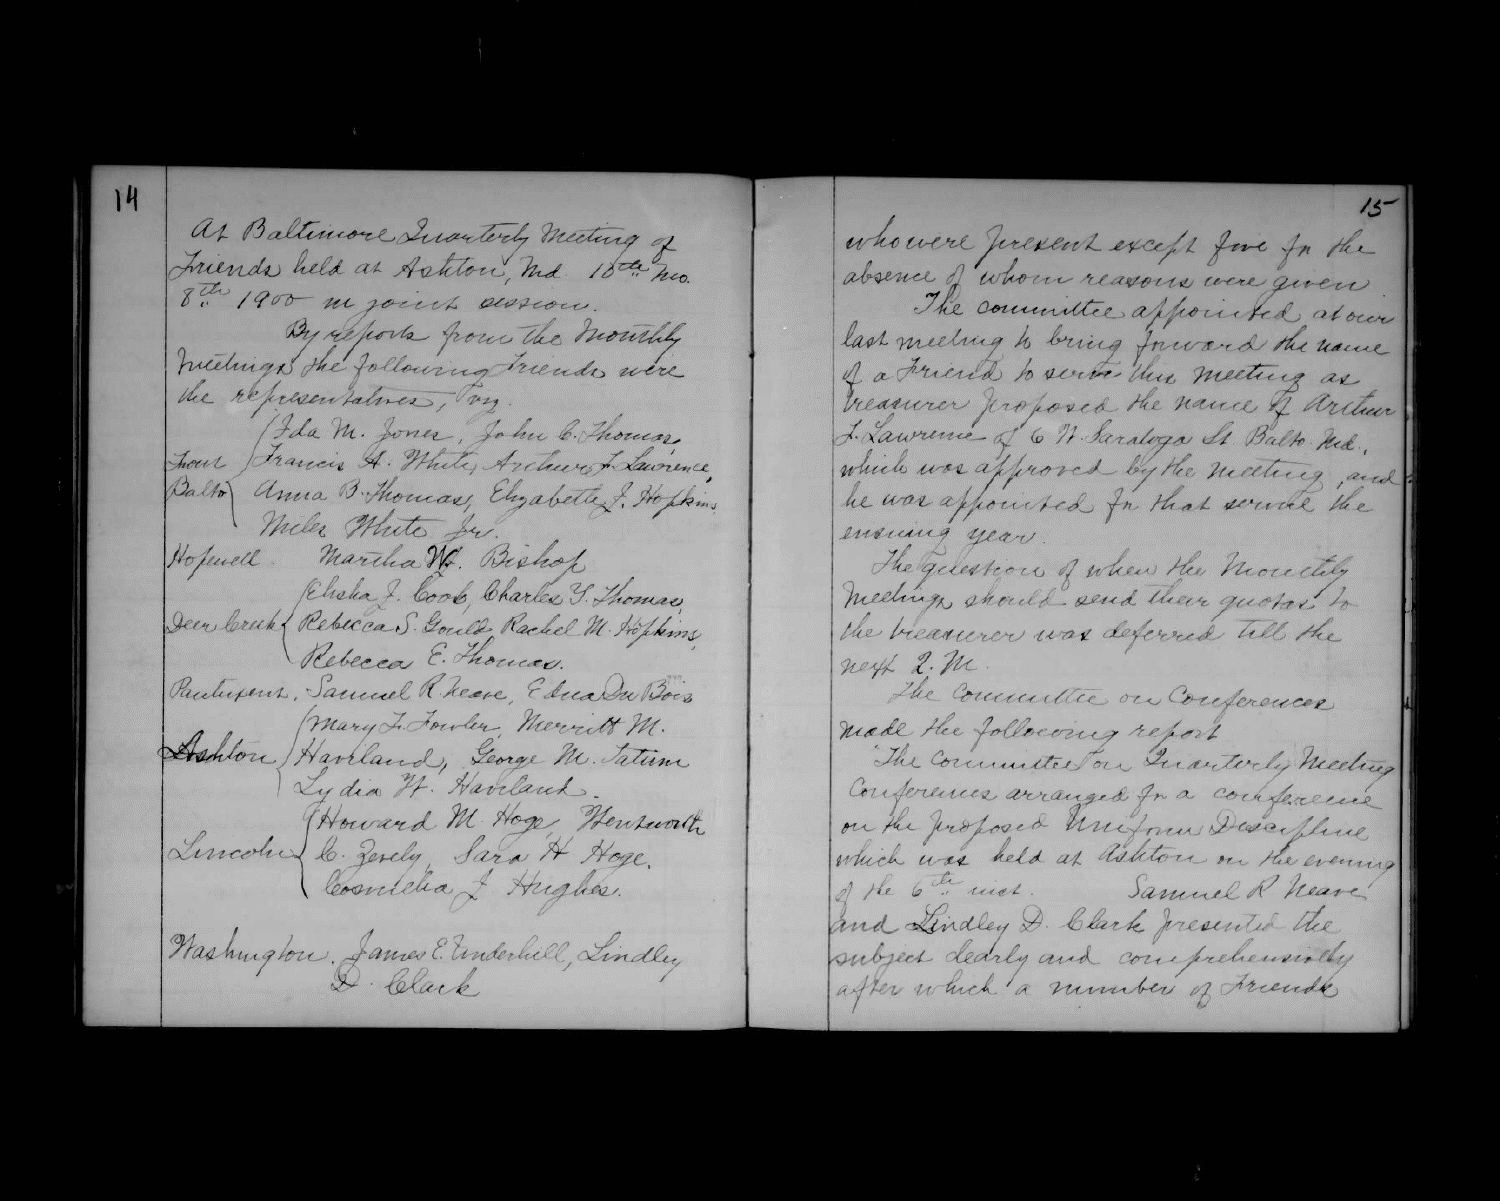 14
At Baltimore Quarterly Meeting of
Friends held at Ashton, Md. 10th Mo.
8th 1900 in joint session.
By reports from the Monthly
Meetings the following Friends were
the representatives, viz.
Ida M. Jones, John C. Thomas,
From Francis A. White, Arthur F. Lawrence,
Balto Anna B. Thomas, Elizabeth J. Hopkins
Miles White Jr.
Hopewell Martha W. Bishop
Elisha J. Cook, Charles Y. Thomas,
Deer Creek Rebecca S. Gould, Rachel M. Hopkins,
Rebecca E. Thomas.
Pautuxent. Samuel R. Neave, Edna Du Bois
Mary F. Fowler, Merritt M.
Ashton Haviland, George M. Tatum
Lydia H. Haviland.
Howard M. Hoge, Wentworth
Lincoln C. Zerely, Sara H Hoge,
Cornelia J. Hughes.
Washington. James E. Underhill, Lindley
D. Clark
15
who were present except five for the
absence of whom reasons were given
The committee appointed at our
last meeting to bring forward the name
of a Friend to serve this meeting as
treasurer proposed the name of Arthur
F. Lawrence of 6 W. Saratoga St Balto. Md.,
which was approved by the meeting, and
he was appointed for that service the
ensuing year.
The question of when the Monthly
Meetings should send their quotas to
the treasurer was deferred till the
next Q. M.
The Committee on Conferences
made the following report
"The Committee on Quarterly Meeting
Conferences arranged for a conference
on the proposed Uniform Discipline
which was held at Ashton on the evening
of the 6th inst. Samuel R Neave
and Lindley D. Clark presented the
subject clearly and comprehensively
after which a number of Friends